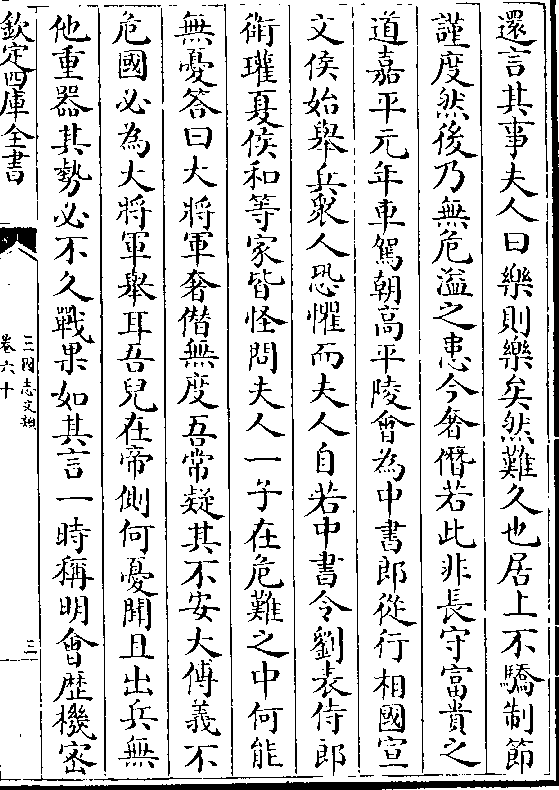 還言其事夫人曰樂則樂矣然難久也居上不驕制節
謹度然後乃無危溢之患今奢僭若此非長守富貴之
道嘉平元年車駕朝高平陵會為中書郎從行相國宣
文侯始舉兵衆人恐懼而夫人自若中書令劉表侍郎
衛瓘夏侯和等家皆怪問夫人一子在危難之中何能
無憂答曰大將軍奢僭無度吾常疑其不安大傅義不
危國必為大將軍舉耳吾兒在帝側何憂聞且出兵無
他重器其勢必不久戰果如其言一時稱明會歴機密
欽定四庫全書
三國志文類
卷六十
三